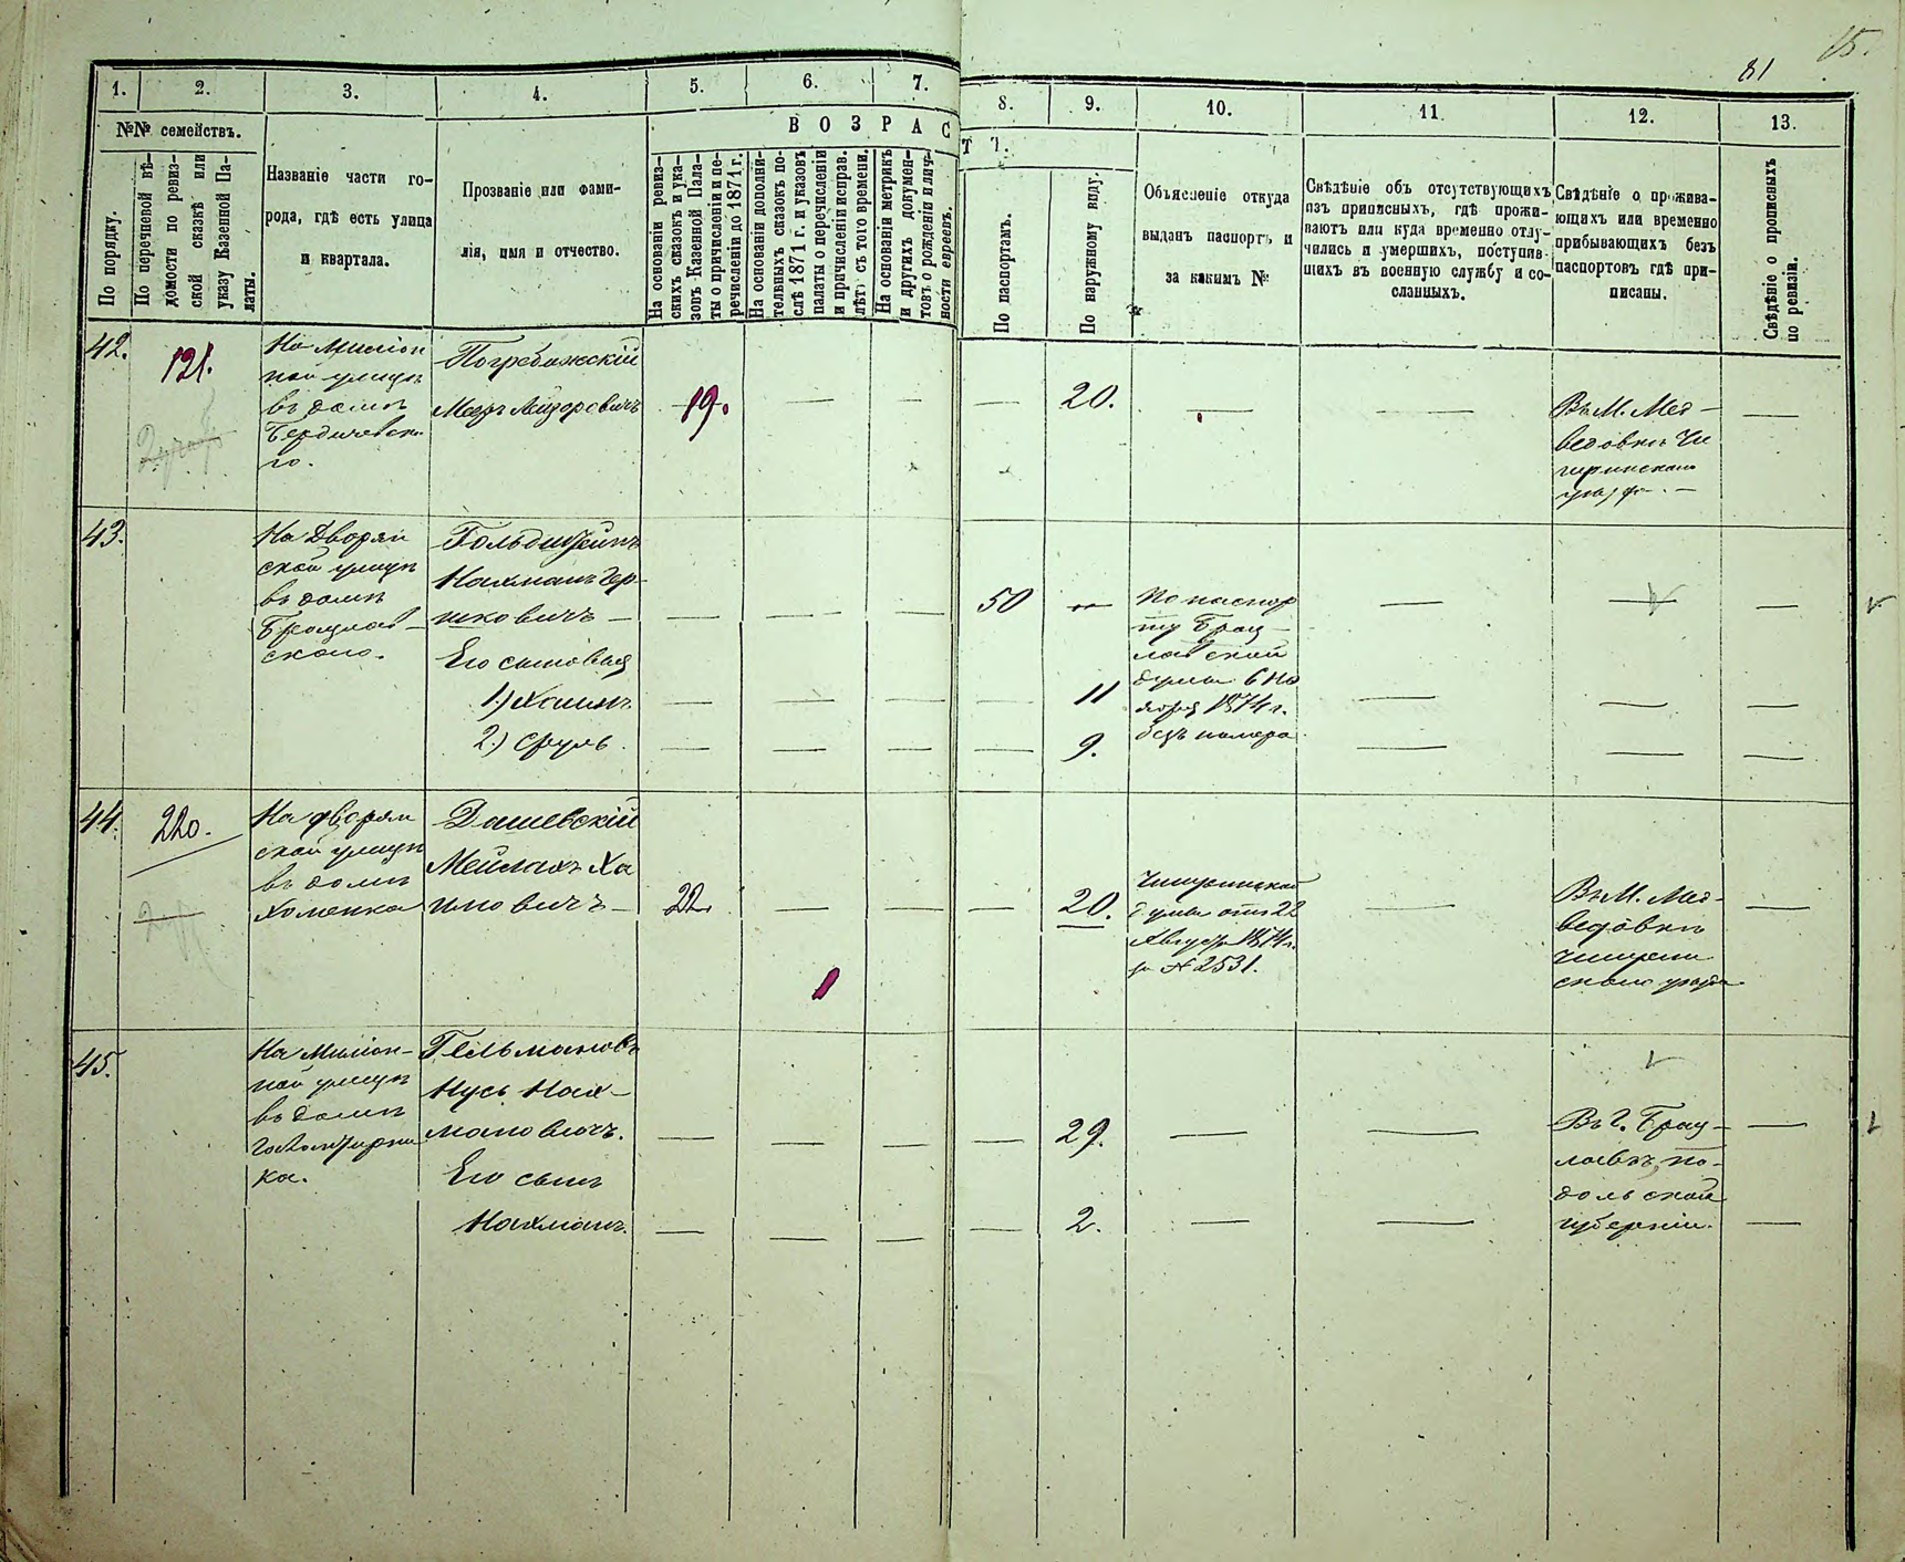 15.
81
1.
2.
3.
4.
5.
6.
7.
8.
9.
10.
11
12.
13.
№№ семействъ.
По порядку.
По перечневой вѣ-
домости по ревиз-
ской сказкѣ или
указу Казенной Па-
латы.
Названіе части го-
рода, гдѣ есть улица
и квартала.
Прозваніе или фами-
лія, имя и отчество.
ВОЗРАС
Т Ъ.
На основаніи ревиз-
скихъ сказокъ и ука-
зовъ Казенной Пала-
ты о причисленіи и пе-
речисленіи до 1871 г.
На основаніи дополни-
тельныхъ сказокъ по-
слѣ 1871 г. и указовъ
палаты о перечисленіи
и причисленіи исправ.
лѣтъ съ того времени.
На основаніи метрикъ
и другихъ докумен-
товъ о рожденіи и лич-
ности евреевъ.
По паспортамъ.
По наружному виду.
Объясненіе откуда
выданъ паспортъ и
за какимъ №
Свѣдѣніе объ отсутствующихъ
изъ приписныхъ, гдѣ прожи-
ваютъ или куда временно отлу-
чились и умершихъ, поступив-
шихъ въ военную службу и со-
сланныхъ.
Свѣдѣніе о прожива-
ющихъ или временно
прибывающихъ безъ
паспортовъ гдѣ при-
писаны.
Свѣдѣніе о прописныхъ
по ревизіи.
42.
121.
На Миліон
ной улицѣ
въ домѣ
Бердичевск
го.
Погребижскій
Мееръ Лейзеровичъ
19.
20.
Въ М. Мед-
ведовкѣ Чи
гиринскаго
уѣзда.
43.
На Дворян
ской улицѣ
въ домѣ
Брацлав-
скаго.
Гольдштейнъ
Нахманъ Гер-
шковичъ
Его сыновья
1.) Хаимъ
2.) Сруль
50
11
9.
По паспор
ту Брац
лавской
думы 6 Но
ября 1874 г.
безъ номера
44.
220.
На дворян
ской улицѣ
въ домѣ
Хоменка
Дашевскій
Мейлахъ Ха
имовичъ
22
20.
Чигиринской
думы отъ 22
Августа 1874 г.
за № 2531.
Въ М. Мед-
ведовкѣ
Чигирин
скаго уѣзда
45.
На Миліон-
ной улицѣ
въ домѣ
ка.
Гельмановъ
Нусь Нах-
мановичъ.
Его сынъ
Нахманъ.
29.
2.
Въ Г. Брац-
лавѣ, По-
дольской
губерніи.